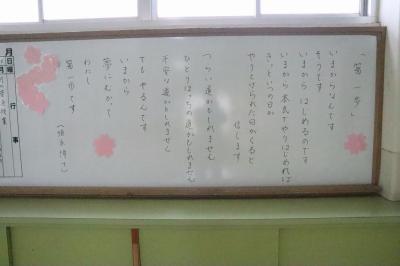 「第一歩」
いまからなんです
そうです
いまから はじめるのです
いまから本気でやりはじめれば
きっといつの日か
やりとげられた日がくると
信じます
つらい道かもしれません
ひとりぼっちの道かもしれません
不安な道かもしれません
でも やるんです
いまから
夢にむかって
わたし
第一歩です
月
日
曜
行
事